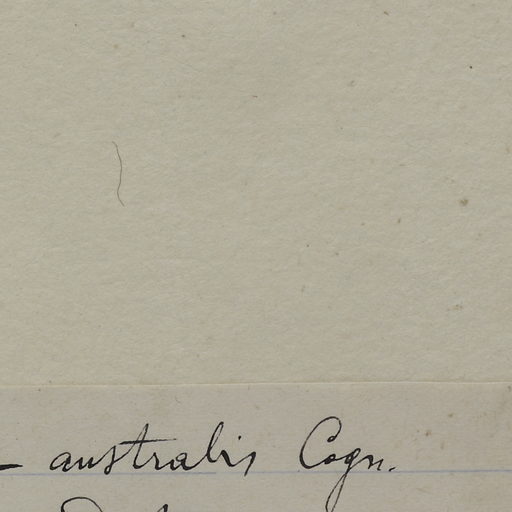 - australis Cogn.